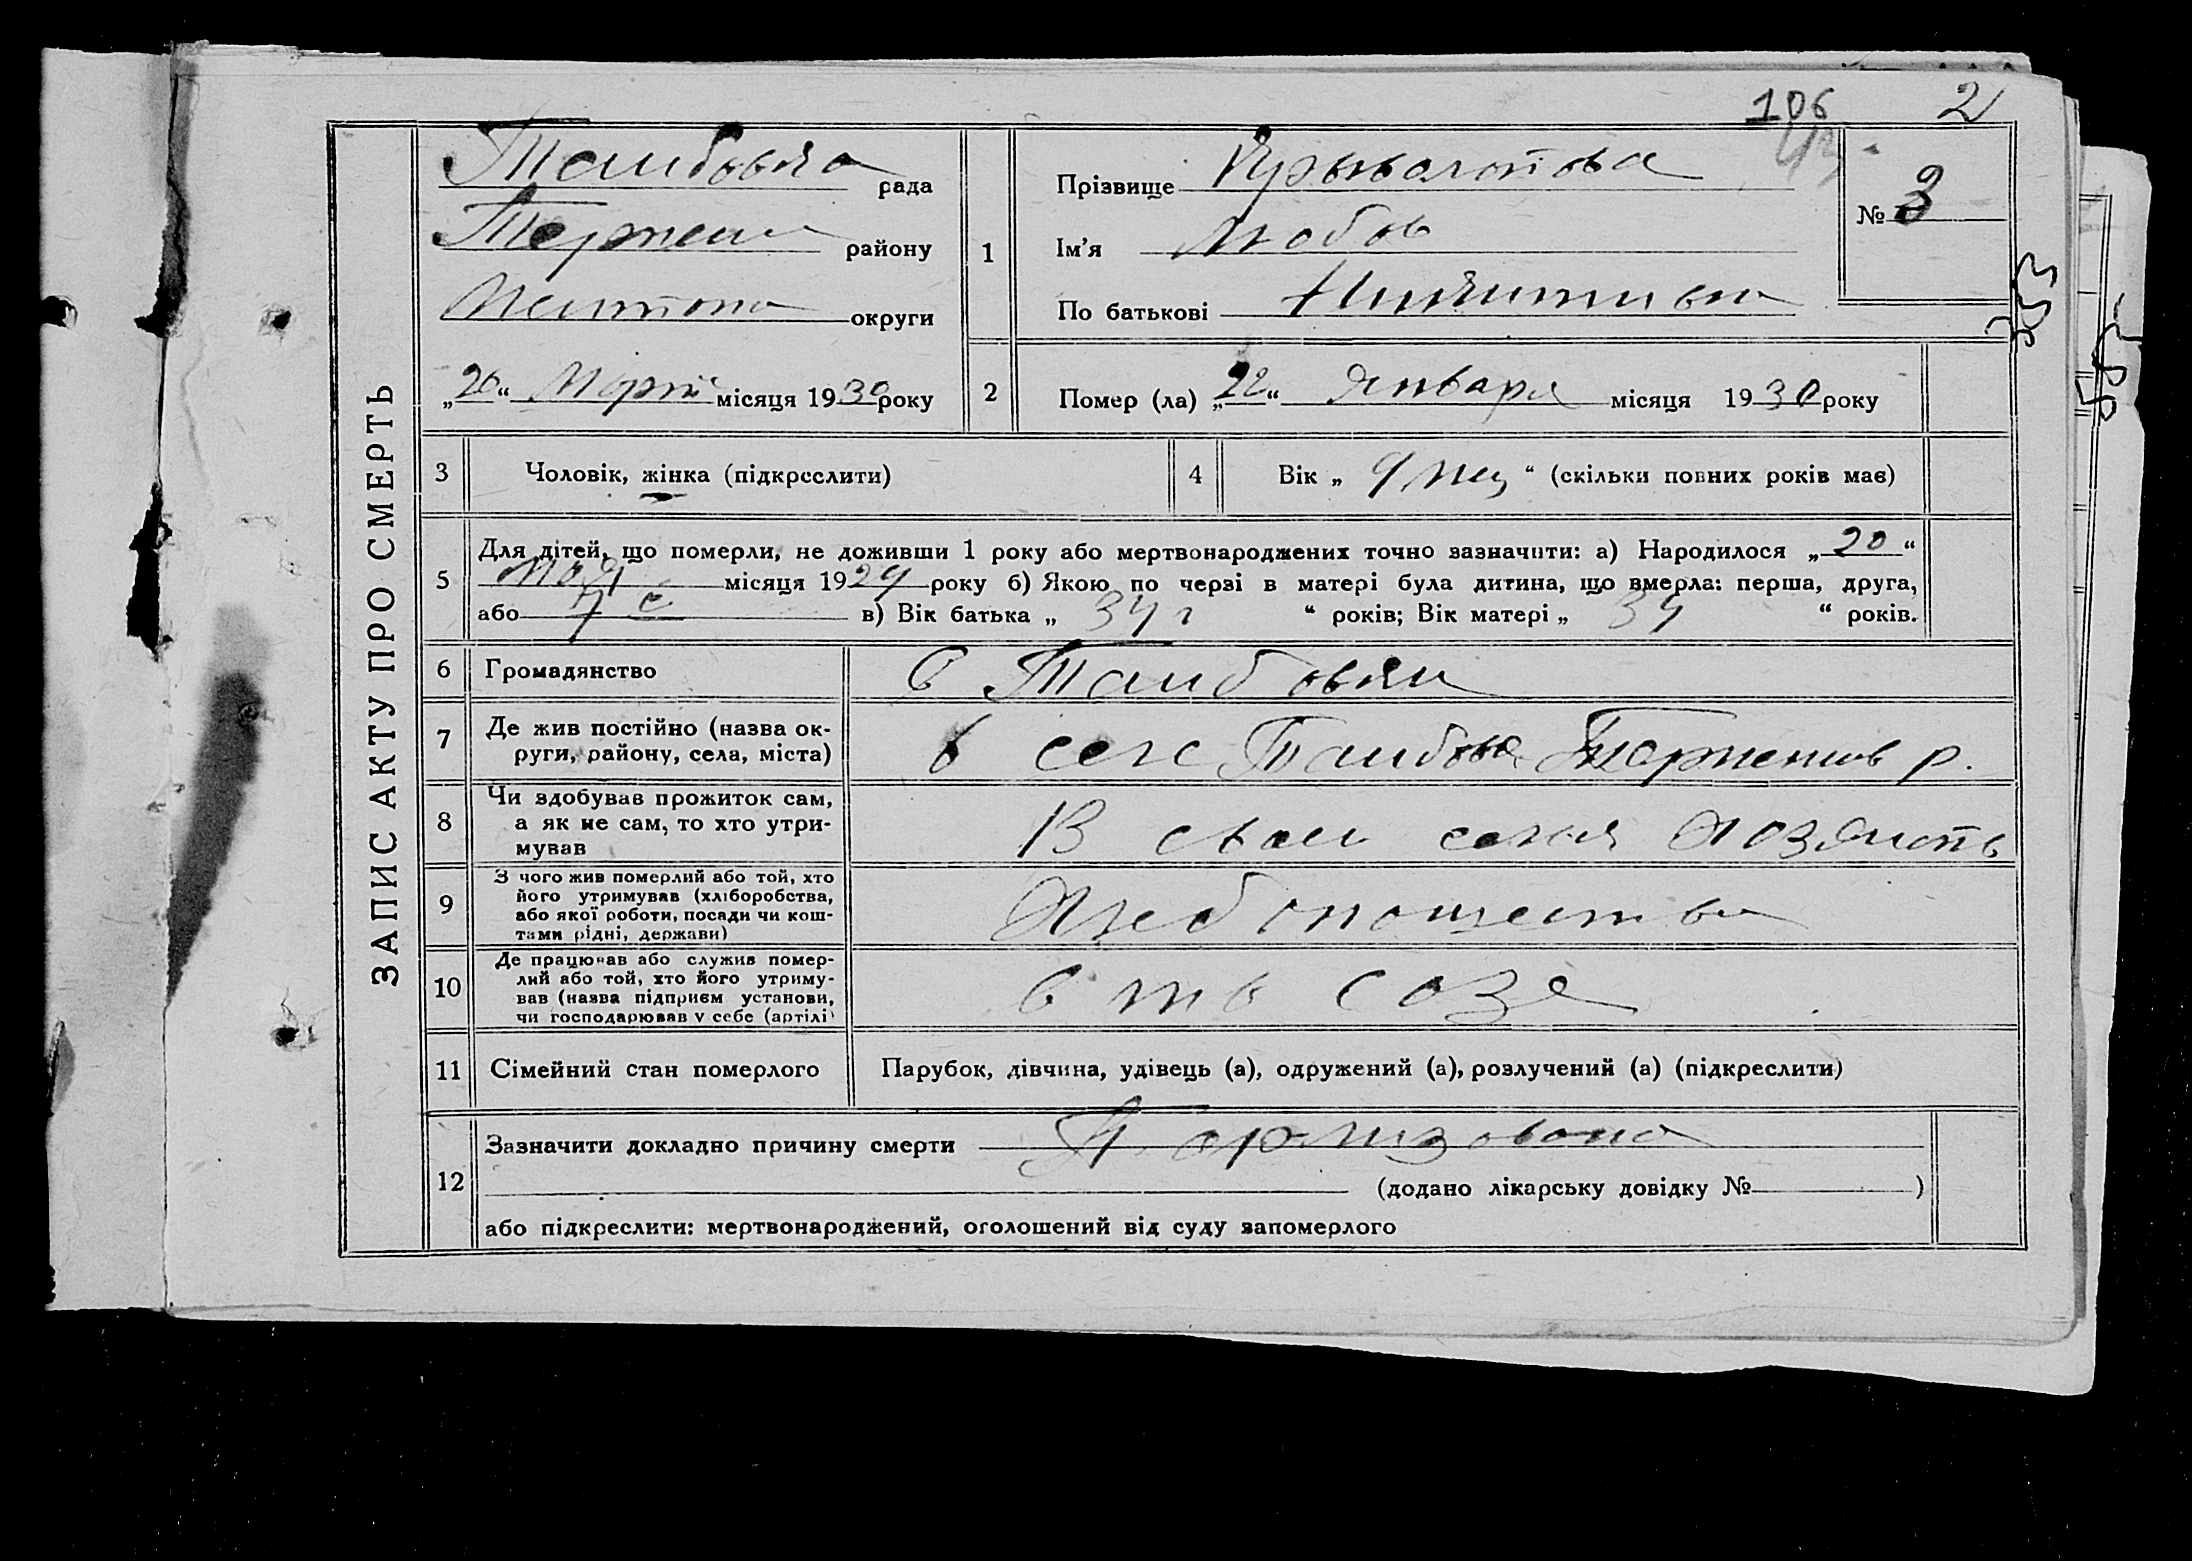 106 2
ЗАПИС АКТУ ПРО СМЕРТЬ
Тамбовка рада
району
округи
„20“ Март місяця 1930 року
1
Прізвище
Ім'я Любов
По батькові Никитивна
№ 3
2 Помер (ла) „22“ Января місяця 1930 року
3 Чоловік, жінка (підкреслити)
4 Вік „9 мец“ (скільки повних років має)
5 Для дітей, що померли, не доживши 1 року або мертвонароджених точно зазначити: а) Народилося „20“
мая місяця 1929 року б) Якою по черзі в матері була дитина, що вмерла: перша, друга,
або 7 е в) Вік батька „34 г“ років; Вік матері „34“ років.
6 Громадянство в Тамбовки
7 Де жив постійно (назва округи, району, села, міста)
в селе Тамбовке р.
8 Чи здобував прожиток сам,
а як не сам, то хто утримував
В своем
9 З чого жив померлий або той, хто
його утримував (хліборобства,
або якої роботи, посади чи коштами рідні, держави)
10 Де працював або служив померлий або той, хто його утримував (назва підприєм установи,
чи господарював у себе (артілі)
в созе
11 Сімейний стан померлого Парубок, дівчина, удівець (а), одружений (а), розлучений (а) (підкреслити)
12 Зазначити докладно причину смерти
(додано лікарську довідку № )
або підкреслити: мертвонароджений, оголошений від суду запомерлого